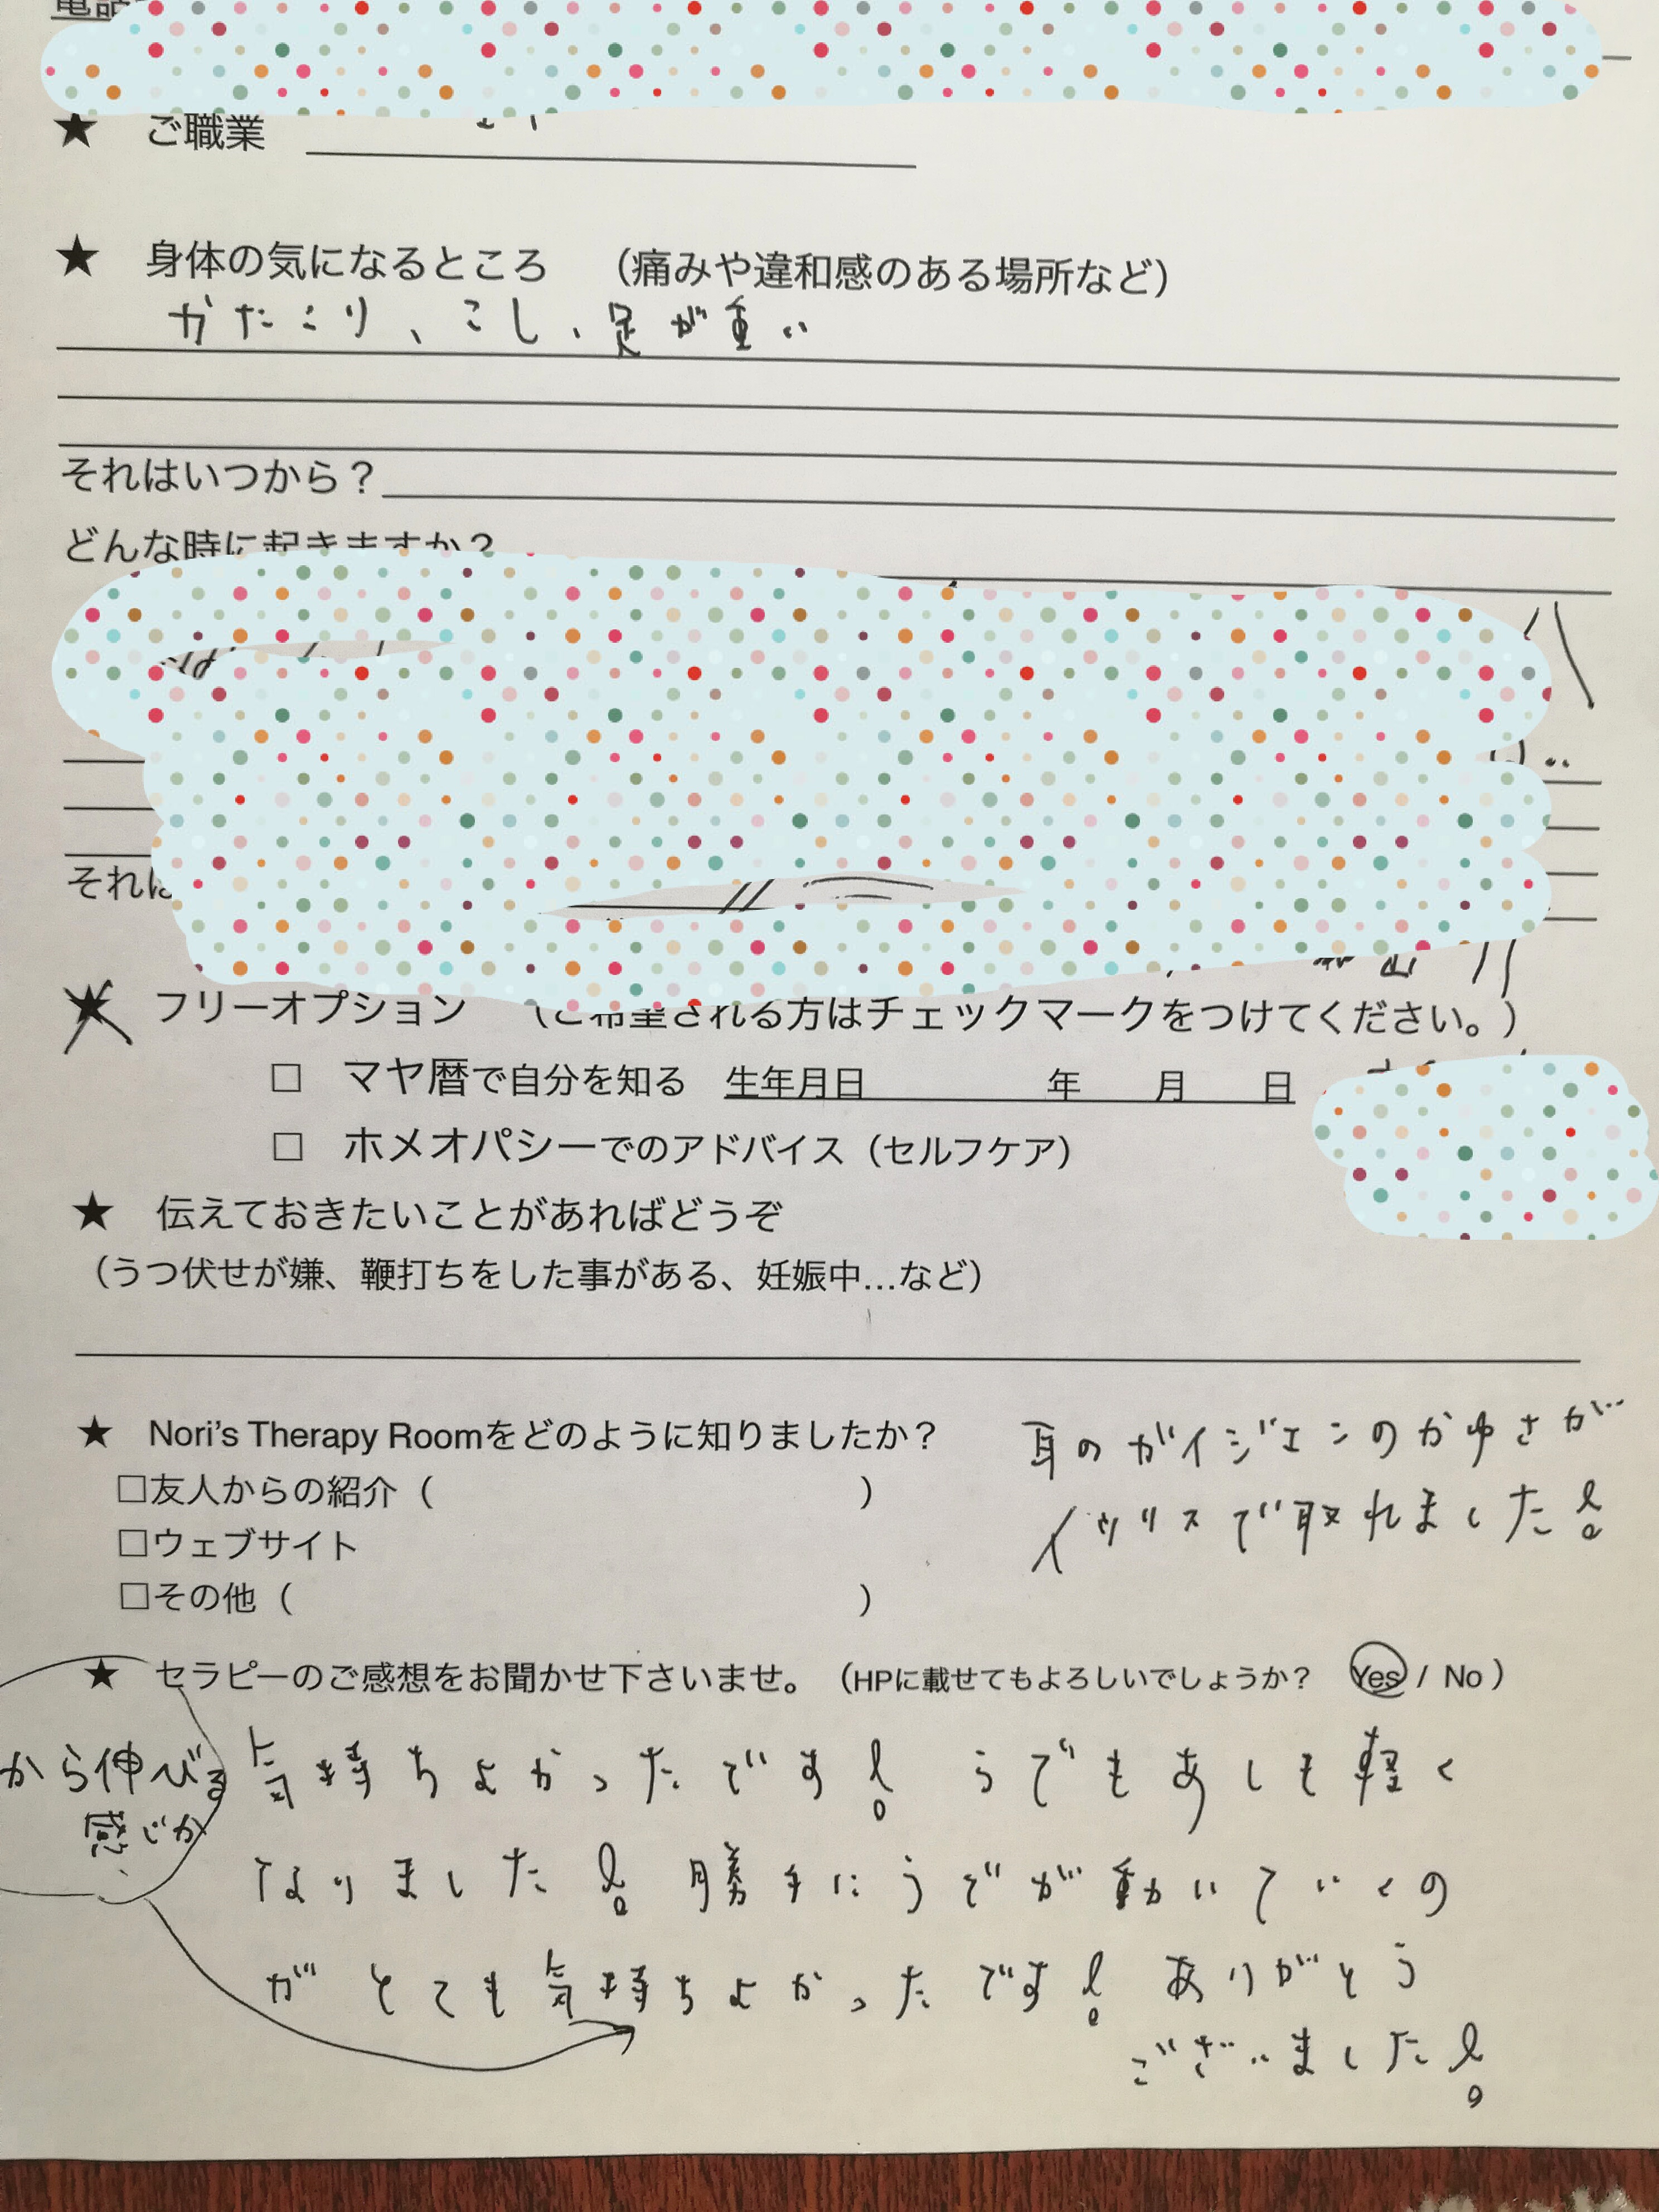 ★ ご職業
★ 身体の気になるところ （痛みや違和感のある場所など）
かたこり、こし、足が重い
それはいつから？
どんな時に起きますか？
それは
★ フリーオプション （ご希望される方はチェックマークをつけてください。）
□ マヤ暦で自分を知る 生年月日 年 月 日
□ ホメオパシーでのアドバイス（セルフケア）
★ 伝えておきたいことがあればどうぞ
（うつ伏せが嫌、鞭打ちをした事がある、妊娠中…など）
★ Nori's Therapy Roomをどのように知りましたか？
□友人からの紹介（ ）
□ウェブサイト
□その他（ ）
耳のガイジエンのかゆさが
イッリスで取れました！
★ セラピーのご感想をお聞かせ下さいませ。（HPに載せてもよろしいでしょうか？ Yes / No ）
から伸びる
感じが
気持ちよかったです！ うでもあしも軽く
なりました！ 勝手にうでが動いていくの
がとても気持ちよかったです！ ありがとう
ございました！